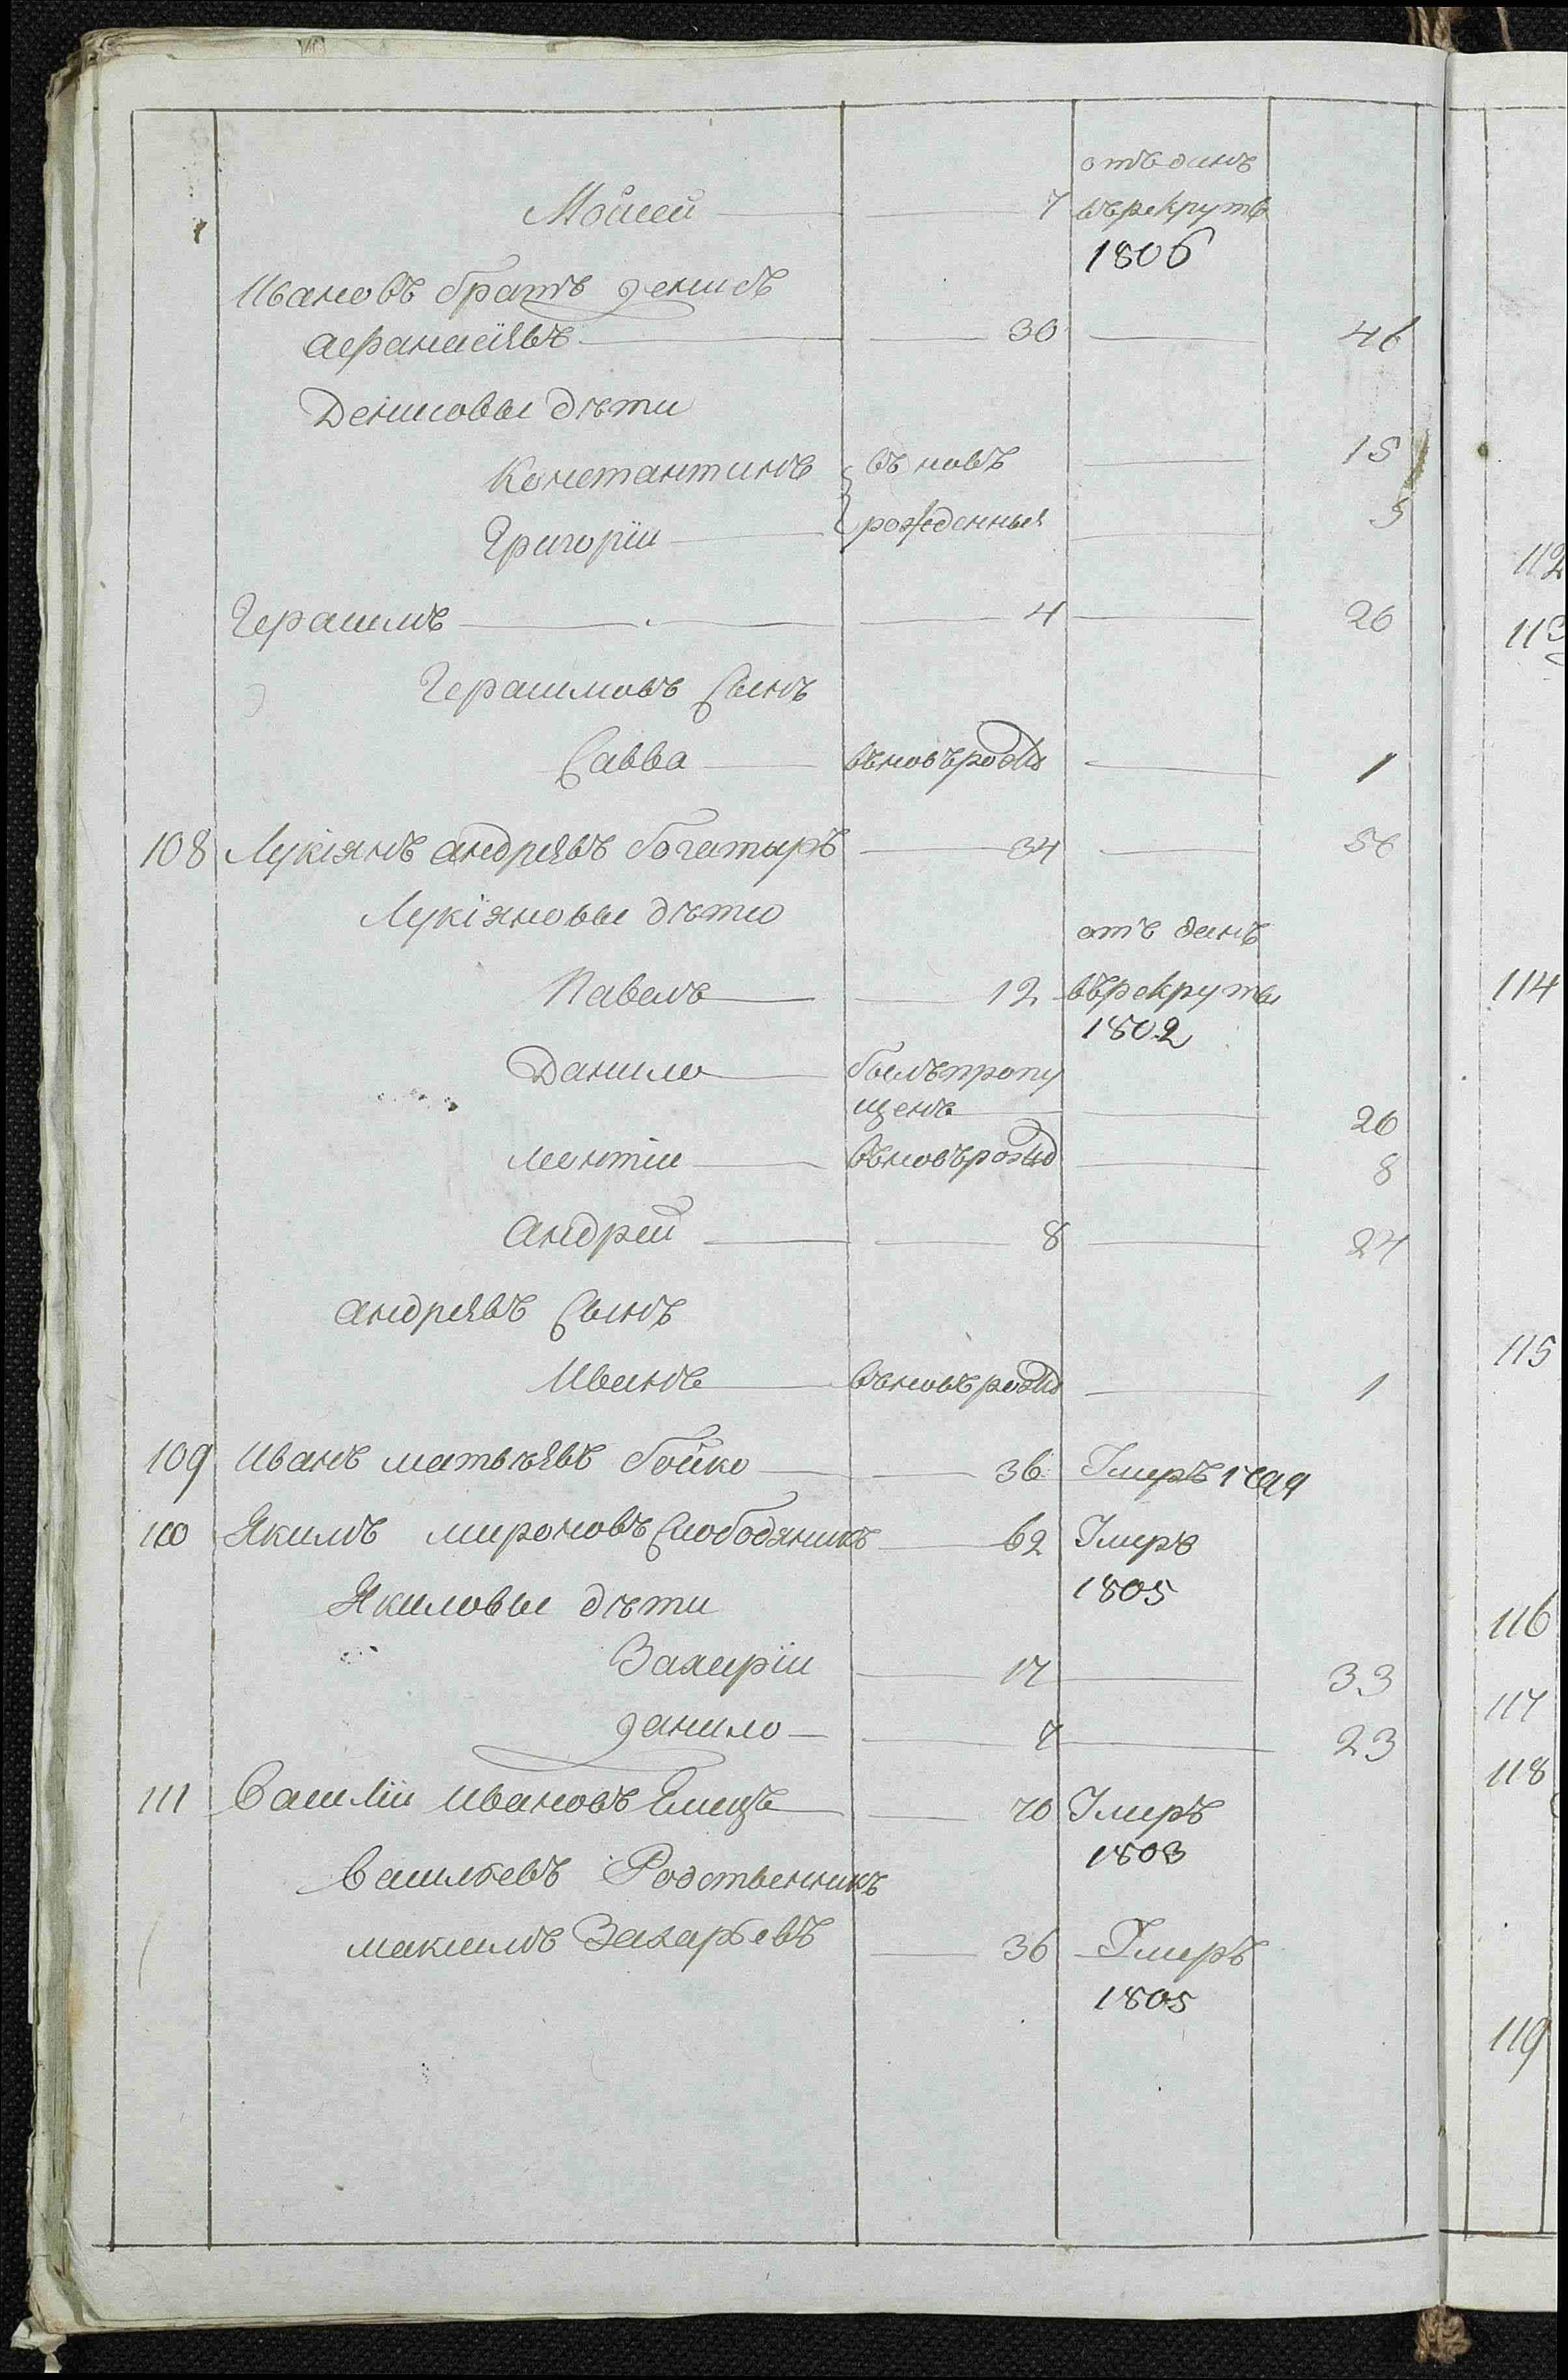 отъ данъ
Мойсей 7 въ рекруты
1806
Ивановъ братъ Денисъ
Афанасіявъ 30 46
Денисовы дѣти
Константинъ въ новь 15
Григорій рожденныя 5
Герасимъ 4 20
Герасимовъ Сынъ
Савва въновъ рожд 1
108 Лукіянъ андреявъ богатыръ 34 50
Лукіяновы дѣти
отъ данъ
Павелъ 12 въ рекруты
1802
Данило былъ пропу
щенъ 20
леонтіи въновъ рожд 8
андрей 8 24
андреявъ Сынъ
Иванъ въновъ рожд 1
109 Иванъ матвѣявъ бойко 36 Умеръ 1799
110 Якимъ мироновъ Слободяникъ 62 Умеръ
1805
Якимовы дѣти
Захаріи 17 33
данило 7 23
111 Василіи Ивановъ Емецъ 70 Умеръ
1803
Васильевъ Родственникъ
максимъ Захарьевъ 36 Умеръ
1805
112
113
114
115
116
117
118
119